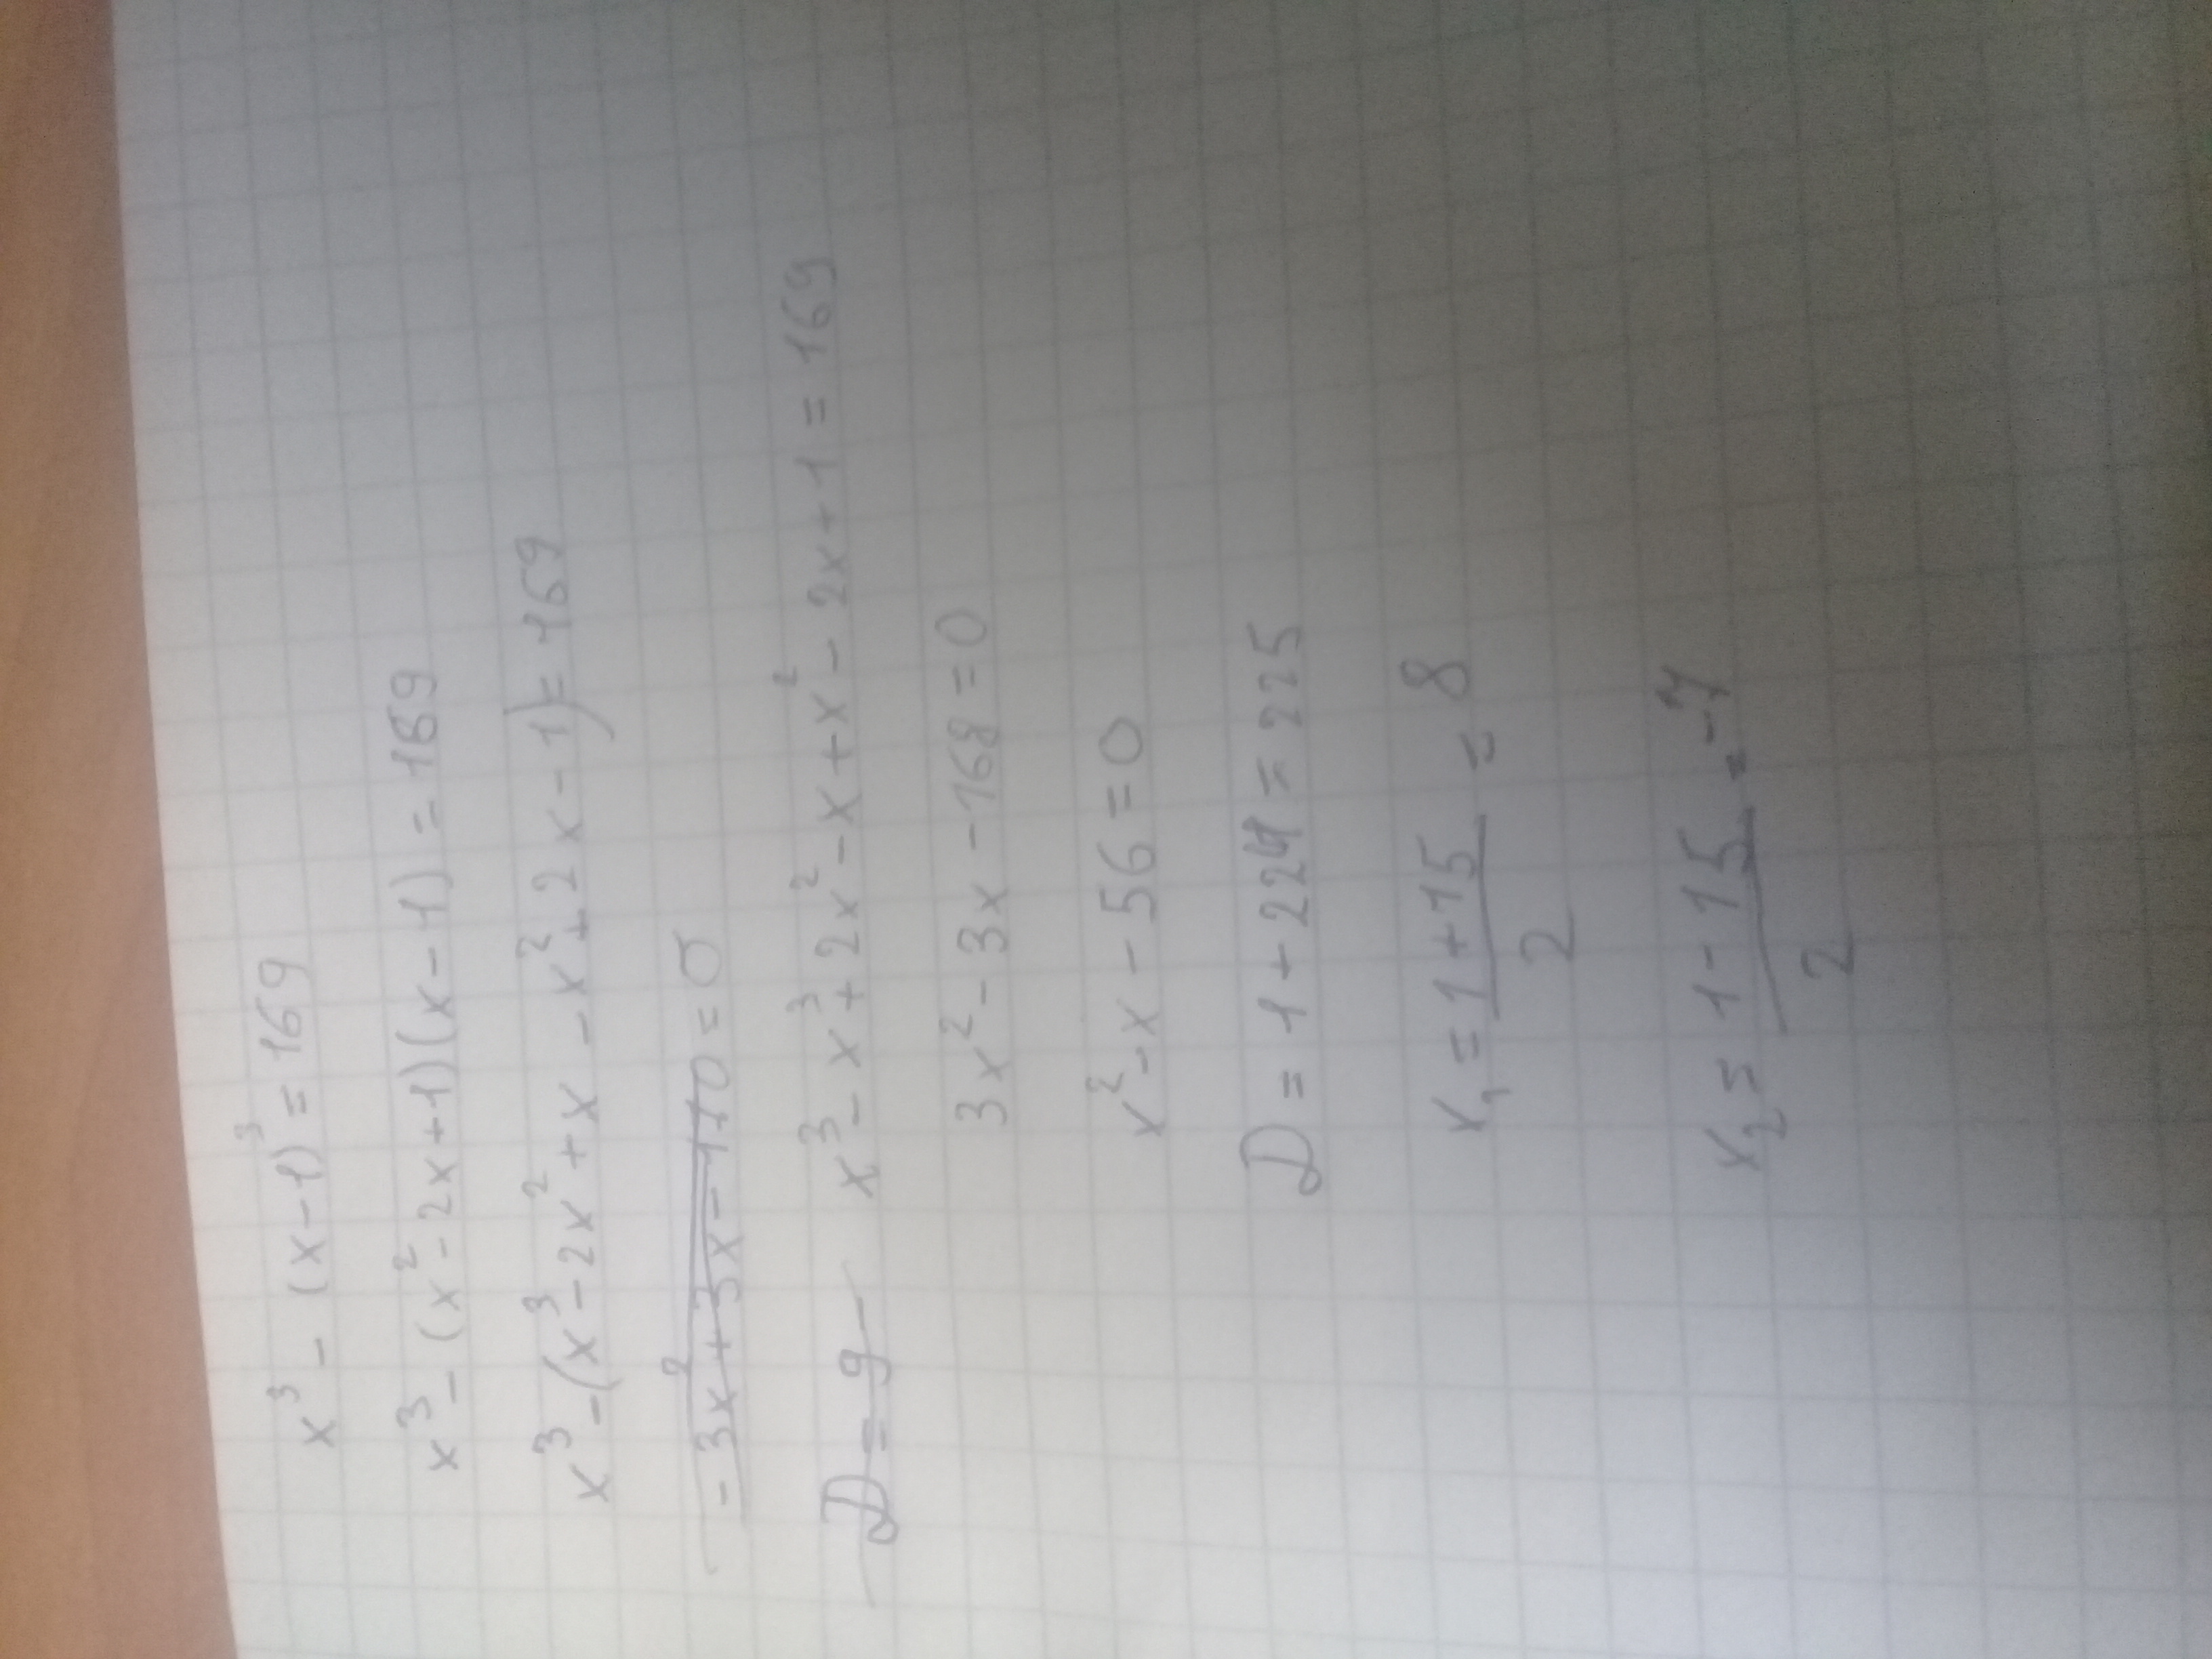 x³ - (x-1)³ = 169
x³ - (x² - 2x + 1)(x - 1) = 169
x³ - (x³ - 2x² + x - x² + 2x - 1) = 169
- 3x² + 3x - 170 = 0
D = 9 x³ - x³ + 2x² - x + x² - 2x + 1 = 169
3x² - 3x - 168 = 0
x² - x - 56 = 0
D = 1 + 224 = 225
x₁ = (1 + 15)/2 = 8
x₂ = (1 - 15)/2 = -7